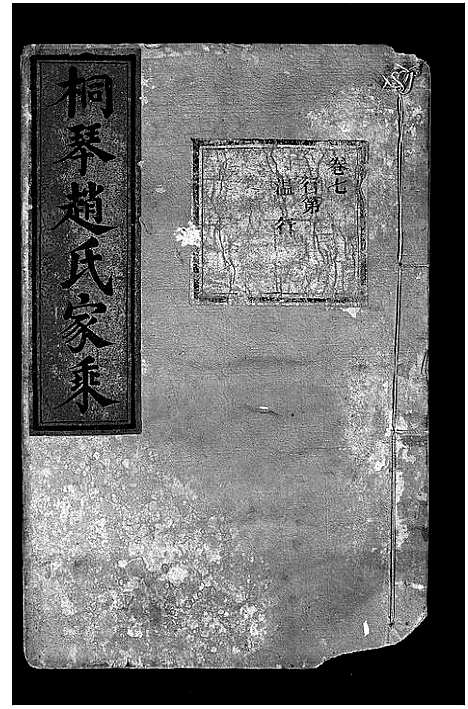 卷七
行第
溫行
桐琴趙氏家乘